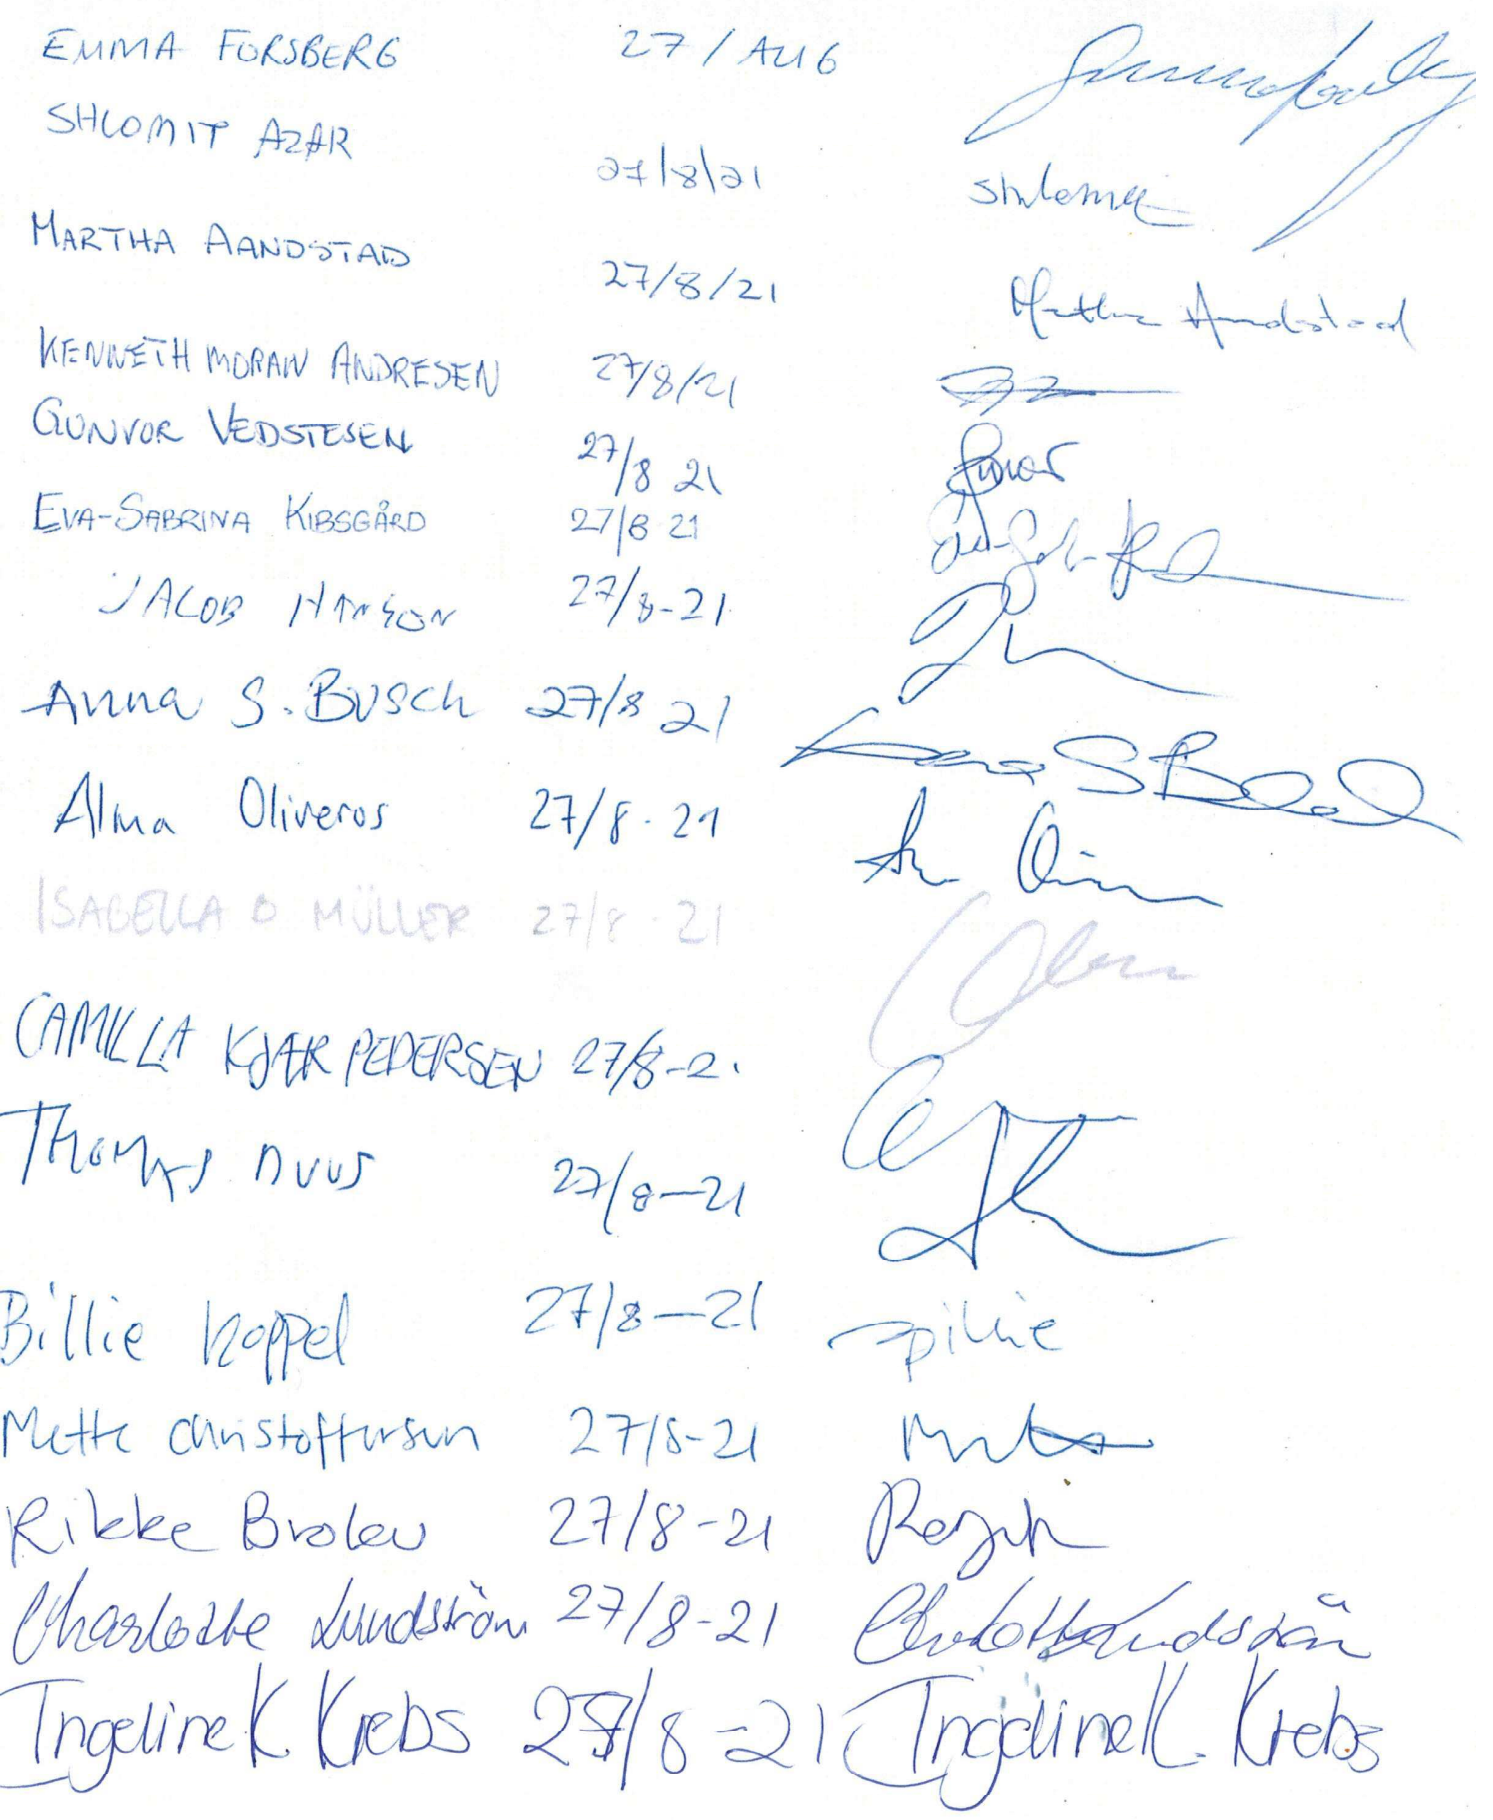 EMMA FORSBERG 27/AUG
SHLOMIT AZAR 27/8/21 Shlomit
MARTHA AANDSTAD 27/8/21 Martha Aandstad
KENNETH MORAN ANDRESEN 27/8/21
GUNVOR VEDSTESEN 27/8 21
EVA-SABRINA KIBSGÅRD 27/8 21
JACOB HANSON 27/8-21
Anna S. BUSCH 27/8 21 Anna S
Alma Oliveros 27/8-21
ISABELLA O MÜLLER 27/8-21
CAMILLA KJÆR PEDERSEN 27/8-2.
THOMAS DUUS 27/8-21
Billie Koppel 27/8-21
Mette Christoffersen 27/8-21
Rikke 27/8-21
Charlotte Lundström 27/8-21 Charlotte Lundström
Ingeline K. Krebs 27/8-21 Ingeline K. Krebs